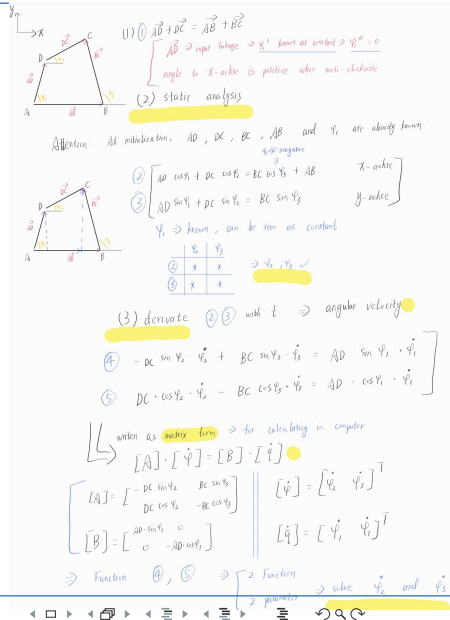 y
x
(1) ① AD + DC = AB + BC
AD ⇒ input linkage ⇒ φ̇₁ known as constant ⇒ φ̈₁ = 0
angle to x-achse is positive when anti-clockwise
(2) static analysis
Attention: At initialization, AD, DC, BC, AB and φ₁ are already known
② AD cos φ₁ + DC cos φ₂ = BC cos φ₃ + AB x-achse
③ AD sin φ₁ + DC sin φ₂ = BC sin φ₃ y-achse
φ₁ ⇒ known, can be seen as constant
φ₂ φ₃
② x x
③ x x
⇒ φ₂, φ₃ ✓
(3) derivate ② ③ with t ⇒ angular velocity
④ - DC sin φ₂ · φ̇₂ + BC sin φ₃ · φ̇₃ = AD · sin φ₁ · φ̇₁
⑤ DC · cos φ₂ · φ̇₂ - BC cos φ₃ · φ̇₃ = AD · cos φ₁ · φ̇₁
written as matrix form ⇒ for calculating in computer
[A] · [φ̇] = [B] · [q̇]
[A] = [ - DC sin φ₂ BC sin φ₃
DC cos φ₂ - BC cos φ₃ ]
[φ̇] = [ φ̇₂ φ̇₃ ]ᵀ
[B] = [ AD · sin φ₁ 0
0 - AD · cos φ₁ ]
[q̇] = [ φ̇₁ φ̇₁ ]ᵀ
⇒ Function ④, ⑤ ⇒ 2 Function
2 parameter
⇒ solve φ̇₂ and φ̇₃